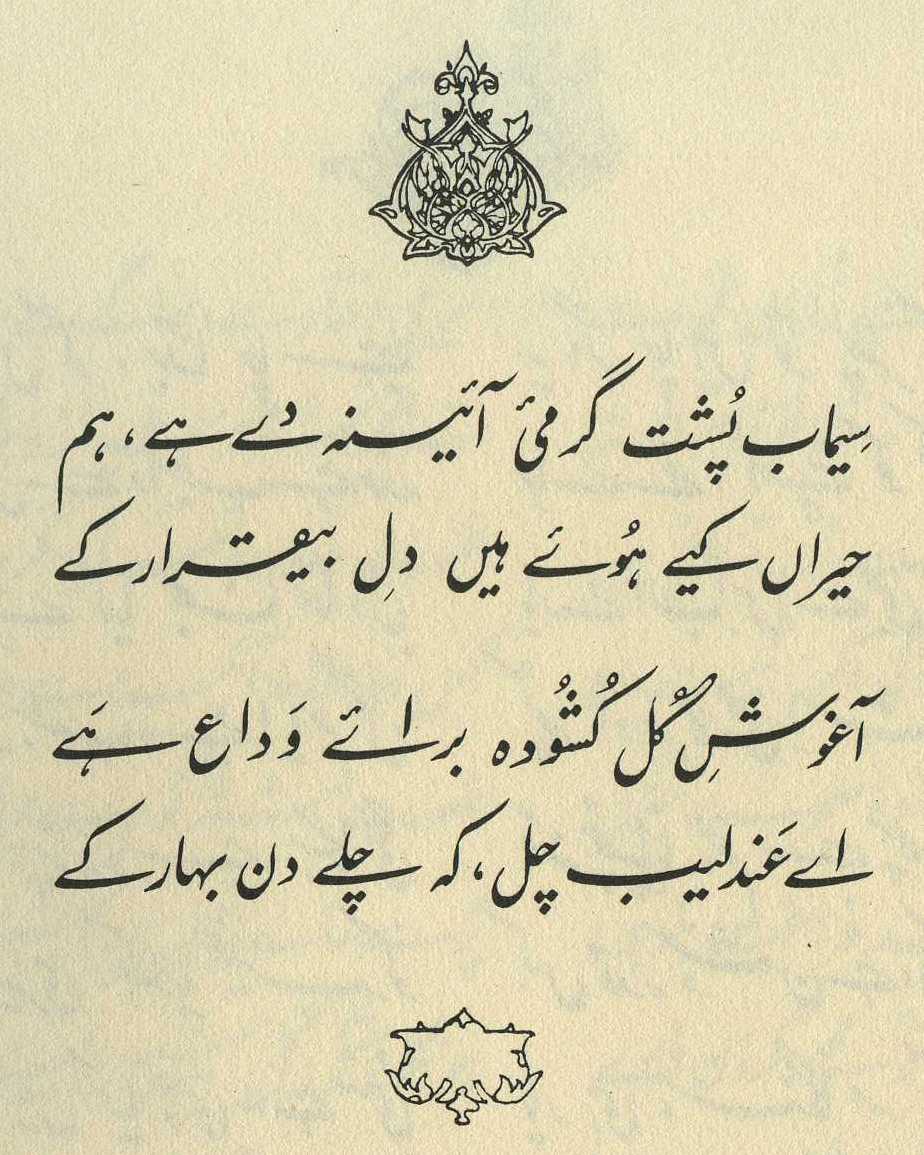 سِیماب پُشت گرمیٔ آئینہ دے ہے، ہم
حیراں کیے ہُوئے ہیں دلِ بیقرار کے
آغوشِ گُل کُشُودہ برائے وَداع ہَے
اے عَندلیب چل، کہ چلے دن بہار کے